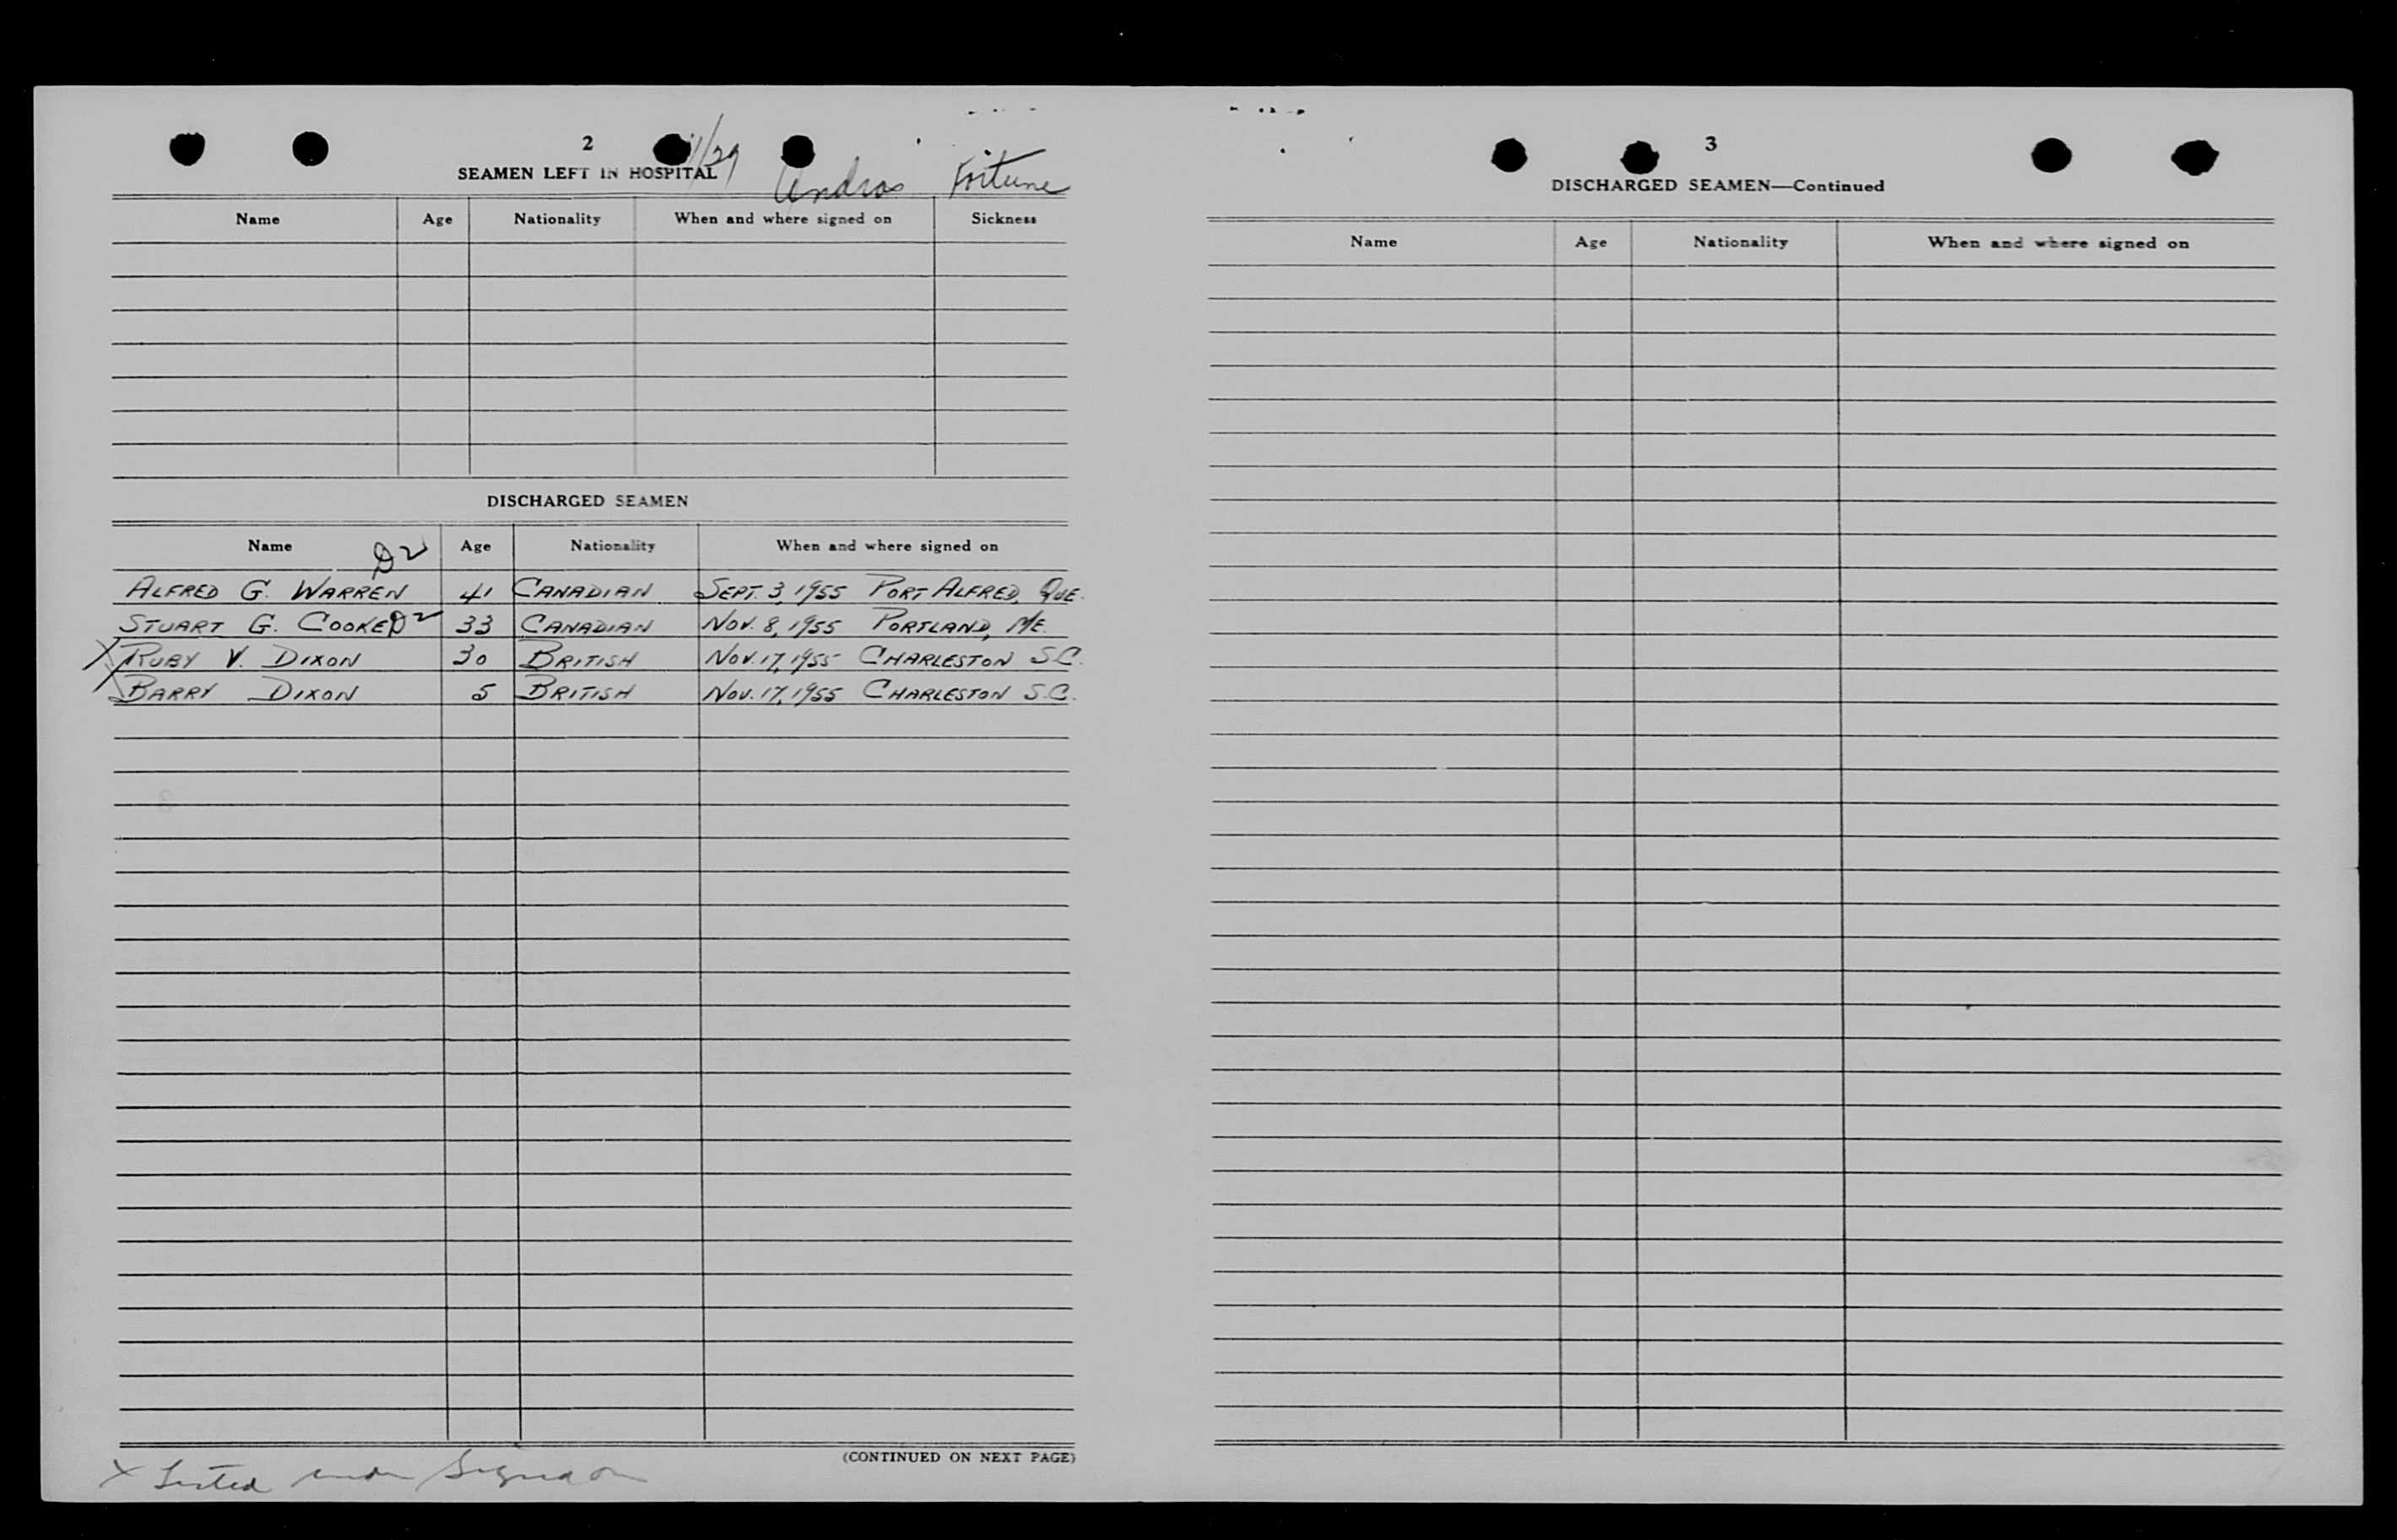 2
11/29
SEAMEN LEFT IN HOSPITAL
Andros Fortune
Name Age Nationality When and where signed on Sickness
DISCHARGED SEAMEN
Name Age Nationality When and where signed on
D2
ALFRED G. WARREN 41 CANADIAN SEPT. 3, 1955 PORT ALFRED, QUE.
STUART G. COOKE D2 33 CANADIAN NOV. 8, 1955 PORTLAND, ME.
X RUBY V. DIXON 30 BRITISH NOV. 17, 1955 CHARLESTON S.C.
X BARRY DIXON 5 BRITISH NOV. 17, 1955 CHARLESTON S.C.
(CONTINUED ON NEXT PAGE)
X Listed under Signed on
3
DISCHARGED SEAMEN—Continued
Name Age Nationality When and where signed on